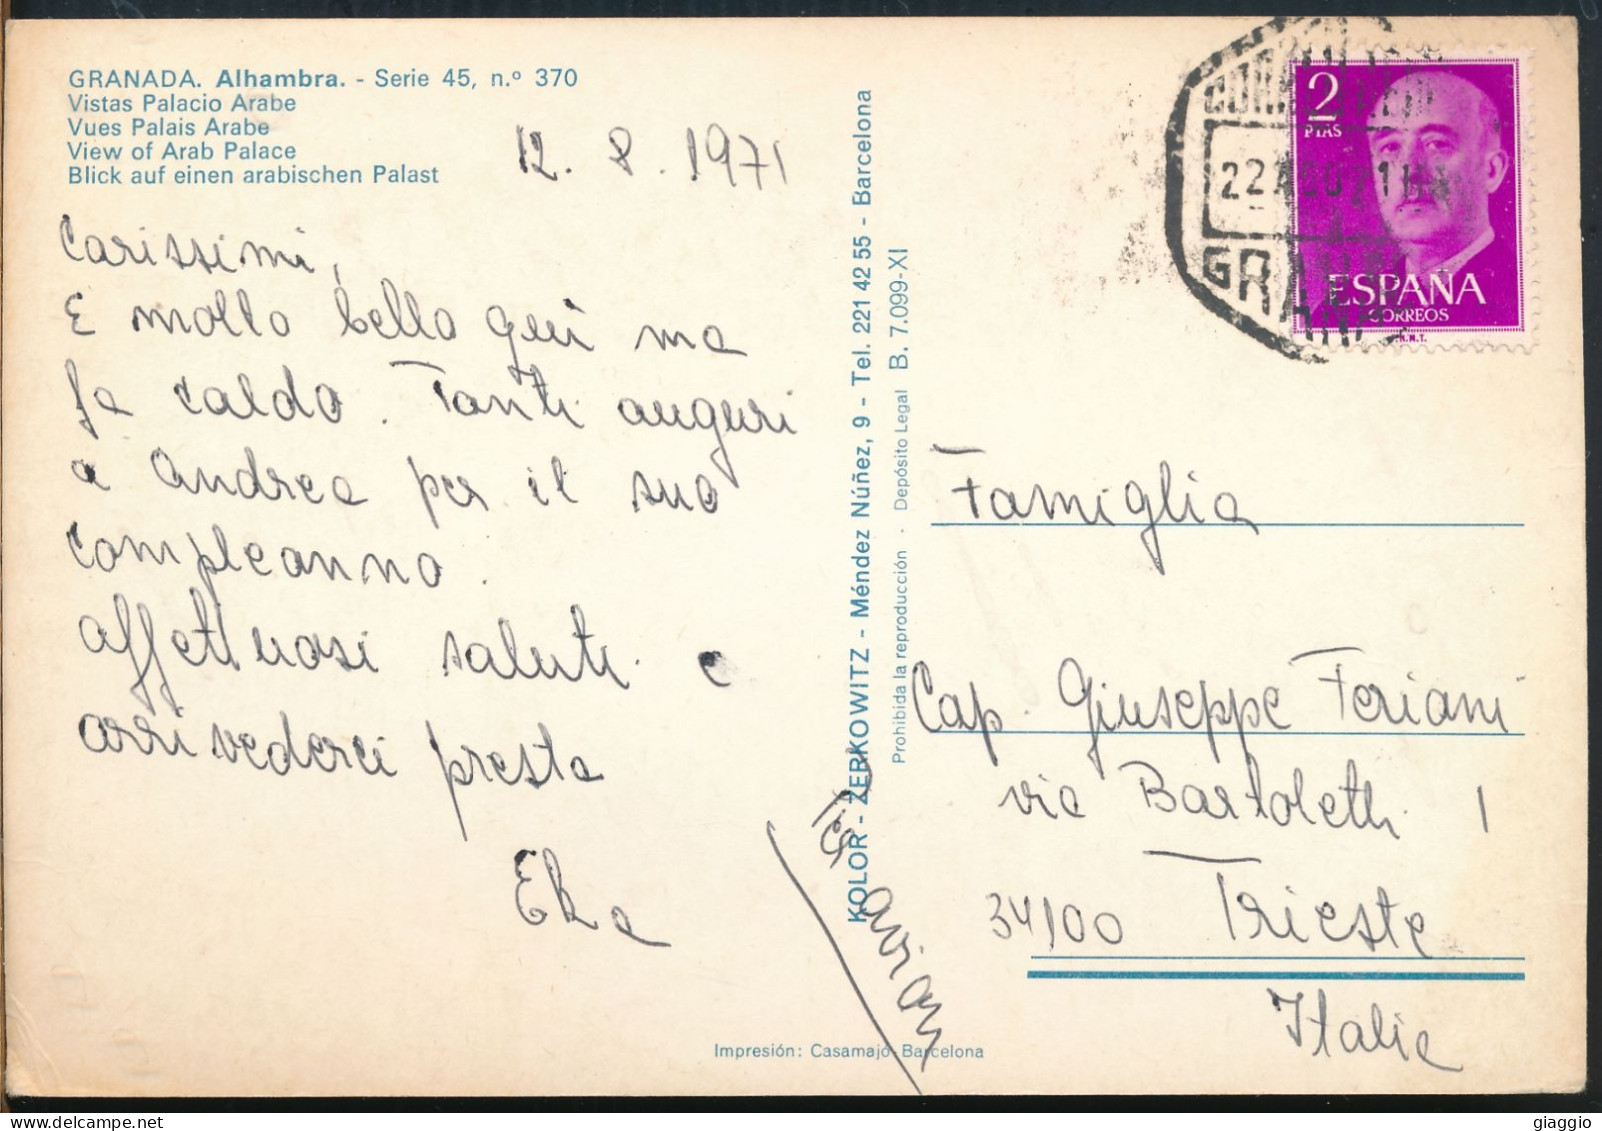 GRANADA. Alhambra. - Serie 45, n.º 370
Vistas Palacio Arabe
Vues Palais Arabe
View of Arab Palace
Blick auf einen arabischen Palast
12. 8. 1971
Carissimi,
E molto bello qui ma
fa caldo. Tanti auguri
a Andrea per il suo
compleanno.
affettuosi saluti e
arrivederci presto
KOLOR - ZERKOWITZ - Méndez Núñez, 9 - Tel. 221 42 55 - Barcelona
Prohibida la reproducción - Depósito Legal B. 7.099-XI
Impresión: Casamajó-Barcelona
Per avion
2
PTAS
ESPAÑA
CORREOS
F.N.M.T.
Famiglia
Cap. Giuseppe Feriani
via Bartoletti 1
34100 Trieste
Italie
giaggio